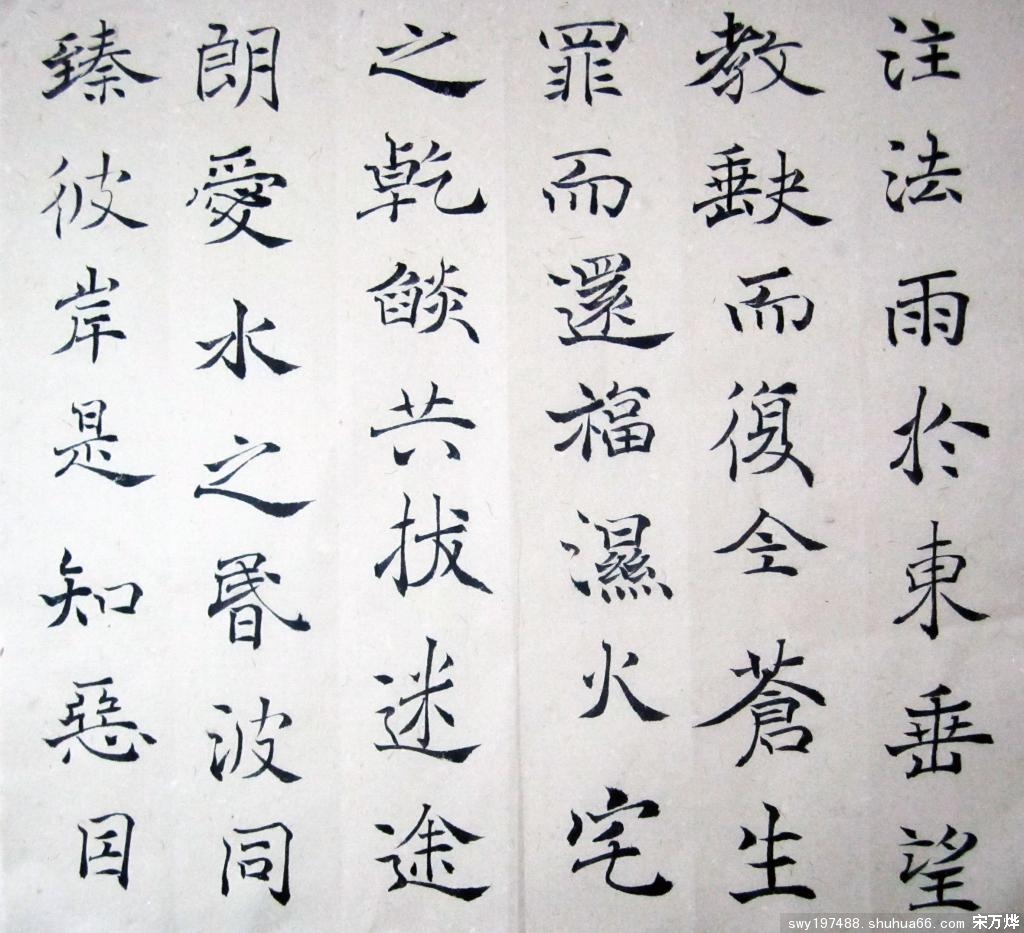 注法雨於東垂望
教缺而復全蒼生
罪而還福濕火宅
之乾燄共拔迷途
朗愛水之昬波同
臻彼岸是知惡因
swy197488.shuhua66.com 宋万烨